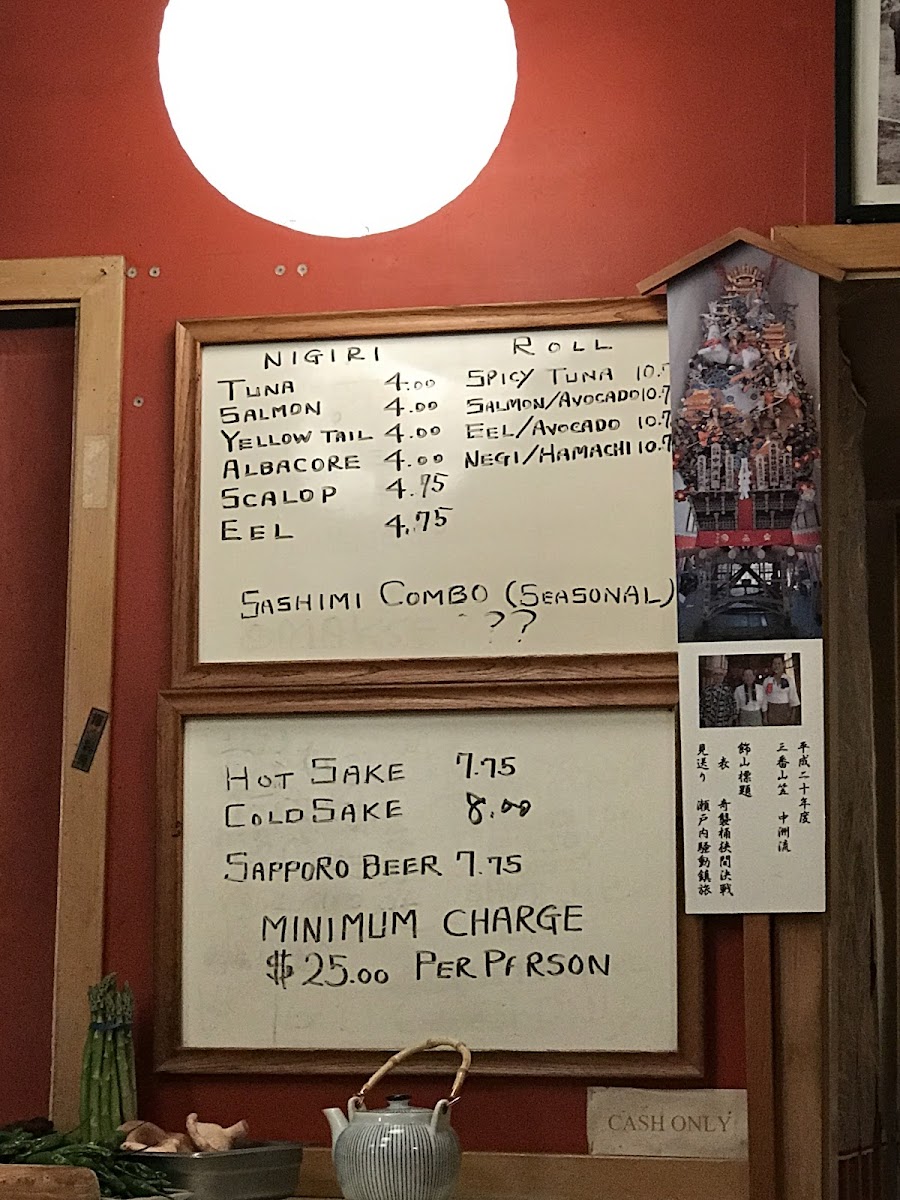 NIGIRI ROLL
TUNA 4.00 SPICY TUNA 10.7
SALMON 4.00 SALMON/AVOCADO 10.7
YELLOW TAIL 4.00 EEL/AVOCADO 10.7
ALBACORE 4.00 NEGI/HAMACHI 10.7
SCALOP 4.75
EEL 4.75
SASHIMI COMBO (SEASONAL)
??
HOT SAKE 7.75
COLD SAKE 8.00
SAPPORO BEER 7.75
MINIMUM CHARGE
$25.00 PER PERSON
平成二十年度
三番山笠 中洲流
飾山標題
表 奇襲桶狭間決戦
見送り 瀬戸内騒動鎮旅
CASH ONLY